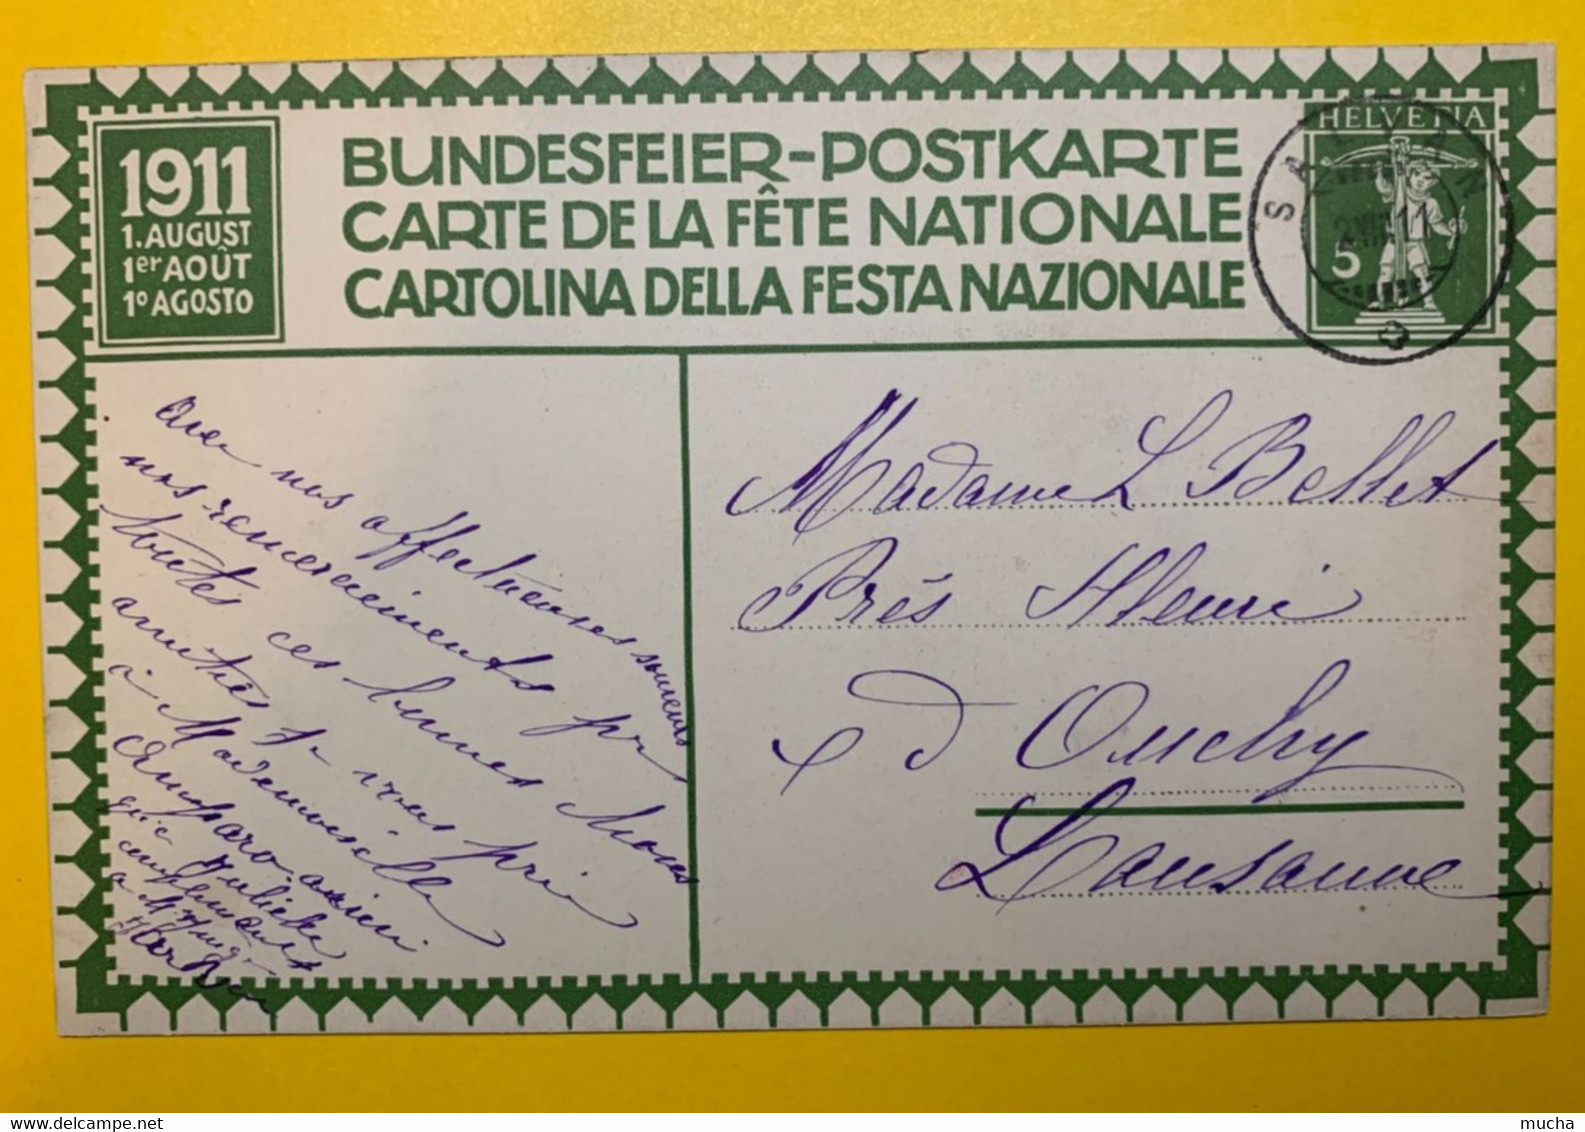 1911
1. AUGUST
1er AOÛT
1º AGOSTO
BUNDESFEIER-POSTKARTE
CARTE DE LA FÊTE NATIONALE
CARTOLINA DELLA FESTA NAZIONALE
HELVETIA
5
SALVAN
2.VIII.11
Avec nos affectueuses
nos remerciements pr
toutes ces
amitiés vous prie
à Mademoiselle
Amparo ainsi
Juliette
Madame L Bellet
Prés Fleuri
d'Ouchy
Lausanne
delcampe.net
mucha